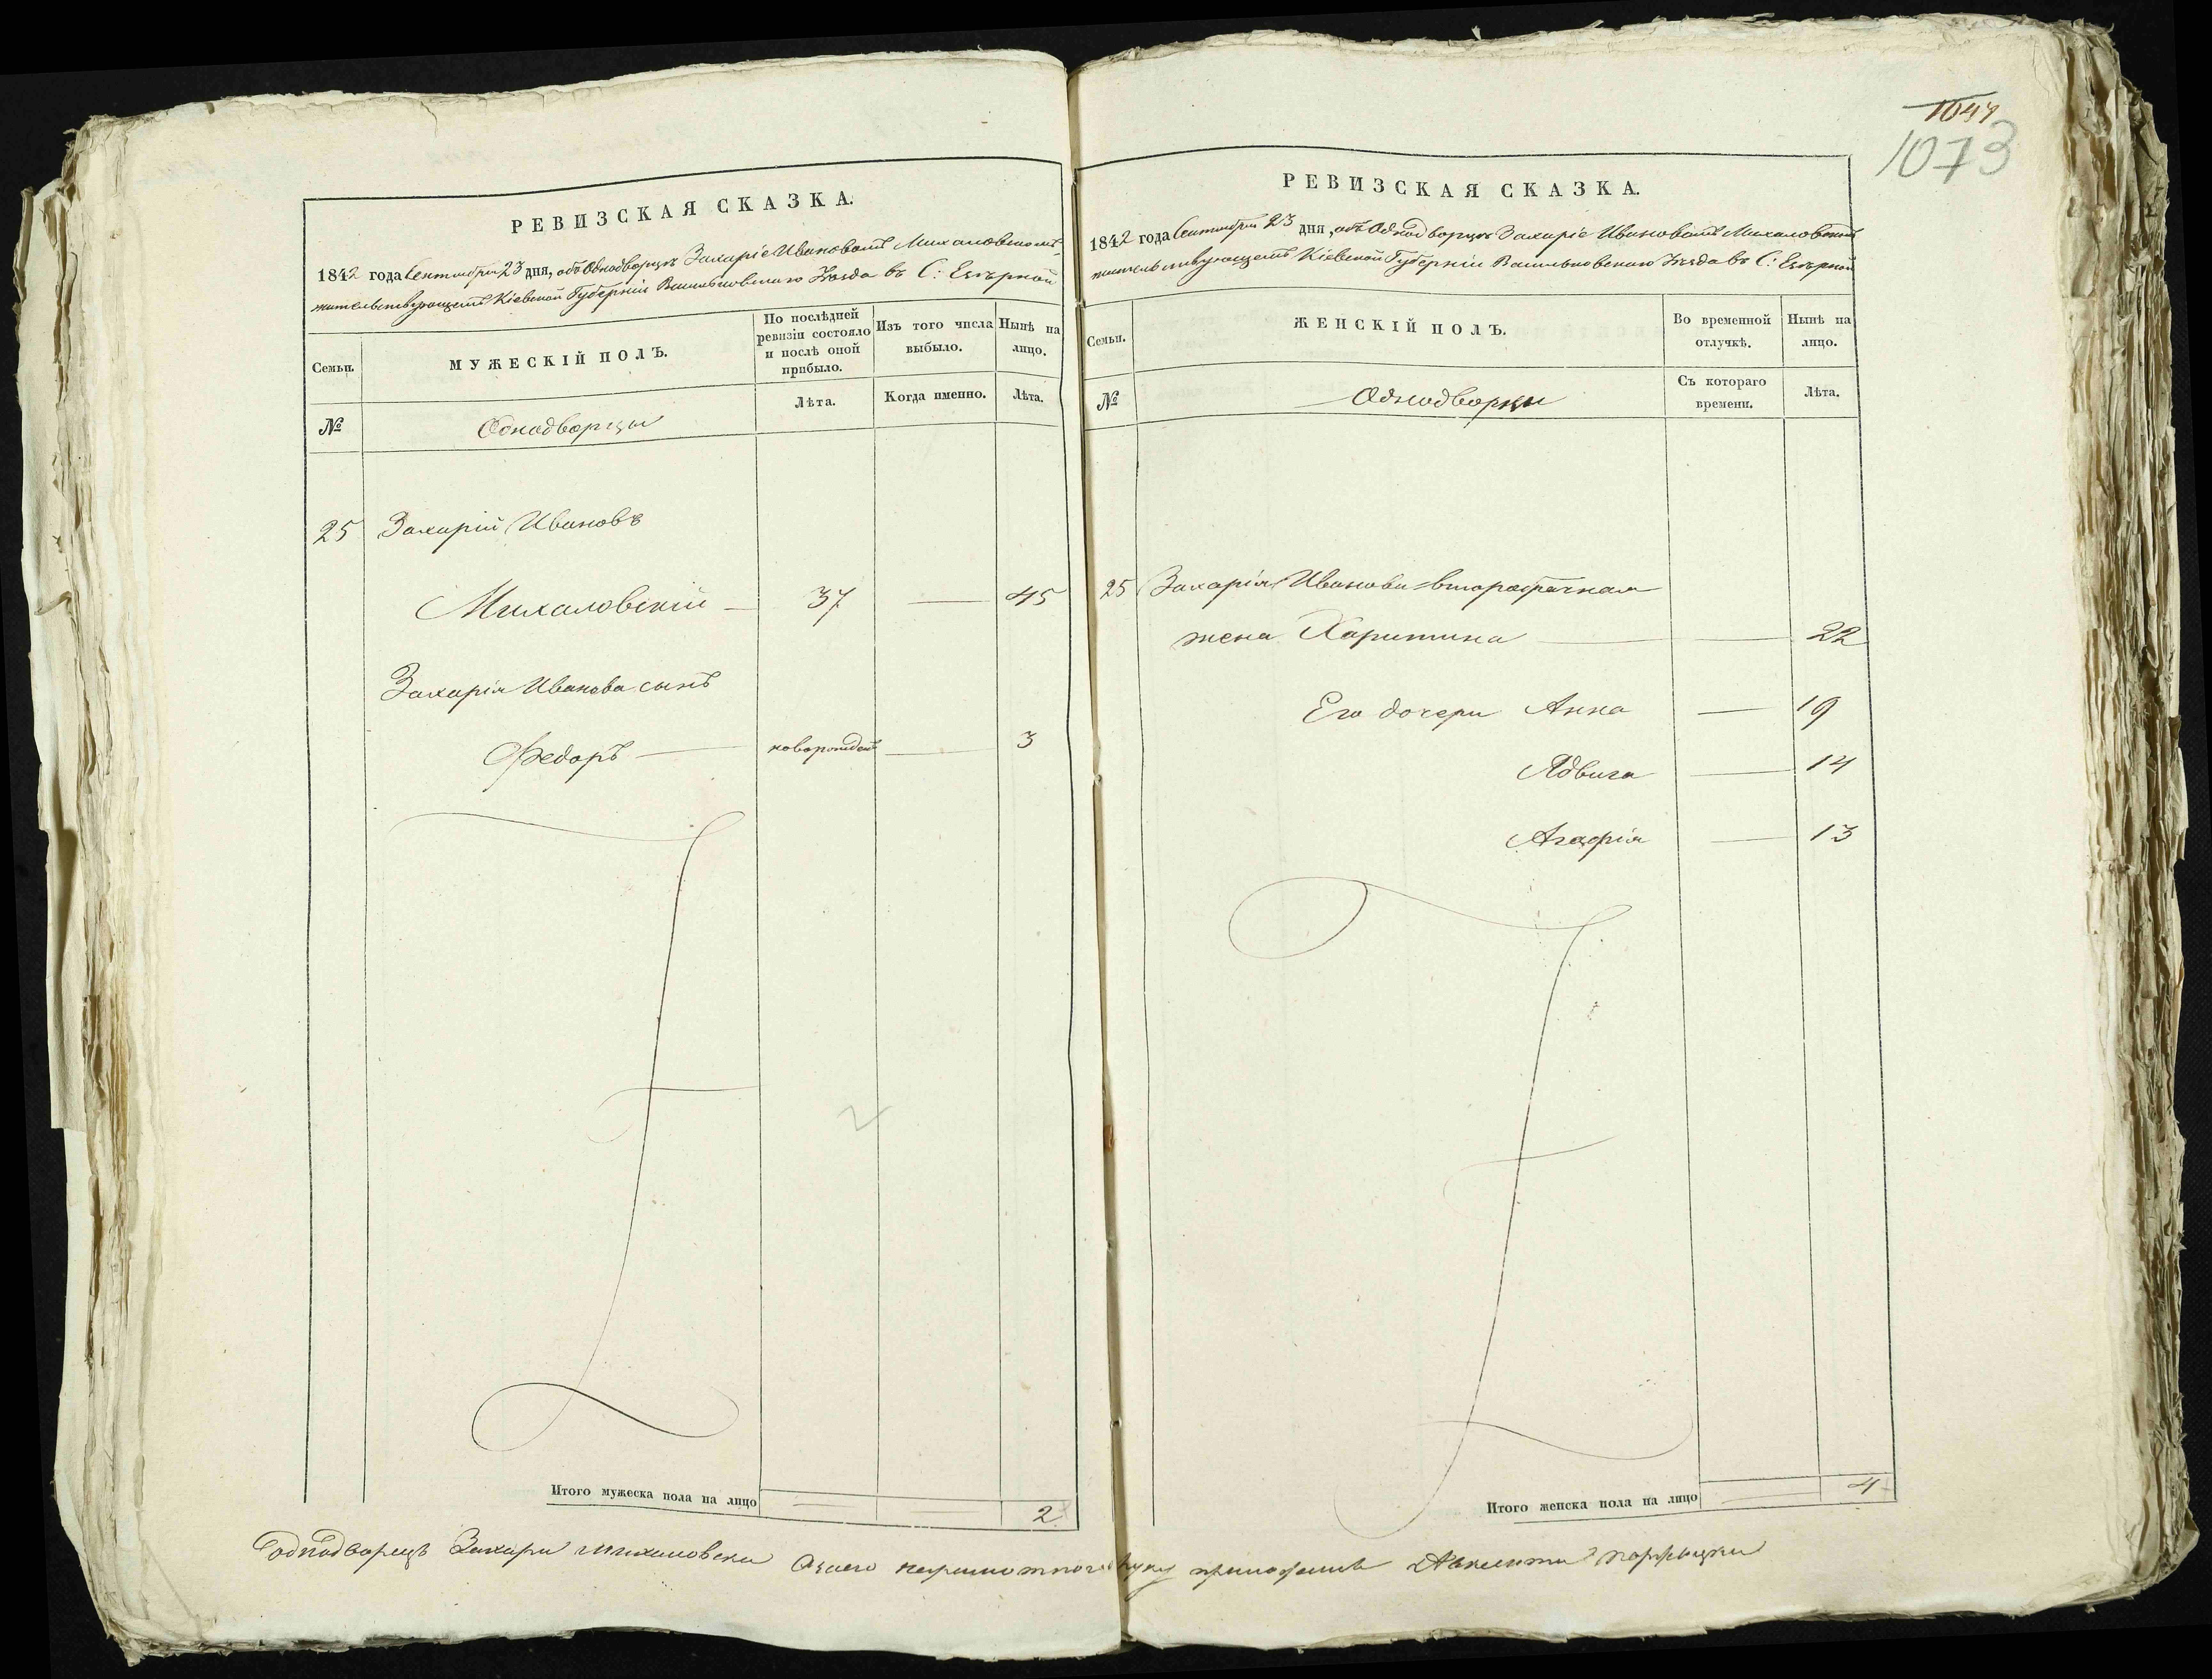 РЕВИЗСКАЯ СКАЗКА.
1842 года Сентября 23 дня, объ Однодворцѣ Захаріе Ивановомъ Михаловскомъ
жительствующемъ Кіевской Губерніи Васильковскаго Уѣзда въ С: Езерной
Семьи.
МУЖЕСКІЙ ПОЛЪ.
По послѣдней ревизіи состояло и послѣ оной прибыло.
Изъ того числа выбыло.
Нынѣ на лицо.
№
Однодворцы
Лѣта.
Когда именно.
Лѣта.
25 Захарій Ивановъ
Михаловскій — 37 — 45
Захарія Иванова сынъ
Федоръ — новорожден — 3
Итого мужеска пола на лицо — — 2
1047
1073
РЕВИЗСКАЯ СКАЗКА.
1842 года Сентября 23 дня, объ Однодворцѣ Захаріе Ивановомъ Михаловскомъ
жительствующемъ Кіевской Губерніи Васильковскаго Уѣзда въ С: Езерной
Семьи.
ЖЕНСКІЙ ПОЛЪ.
Во временной отлучкѣ.
Нынѣ на лицо.
№
Однодворцы
Съ котораго времени.
Лѣта.
25 Захарія Иванова второбрачная
жена Харитина — — 22
Его дочери Анна — 19
Ядвига — 14
Агафія — 13
Итого женска пола на лицо — 4
однодворецъ Захари Михаловски Азаего неграмотного руку приложилъ